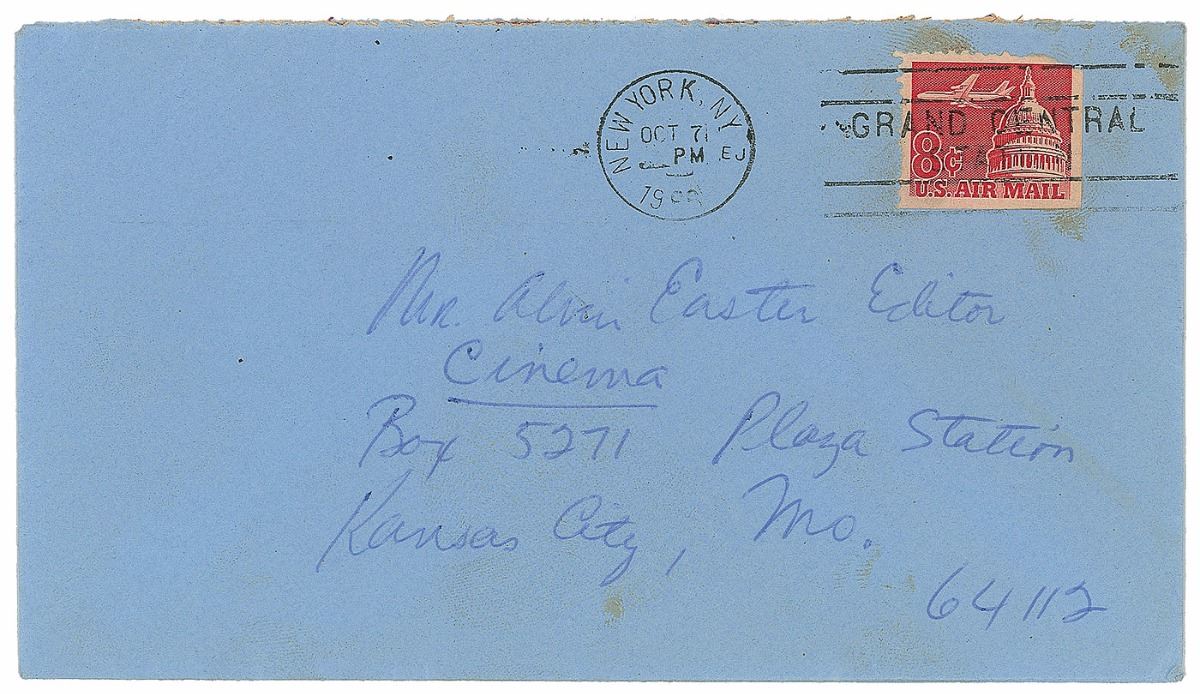 NEW YORK, NY
OCT 71
PM EJ
GRAND CENTRAL
8¢
U.S. AIR MAIL
Mr. Alvin Easter Editor
Cinema
Box 5271 Plaza Station
Kansas City, Mo.
64112